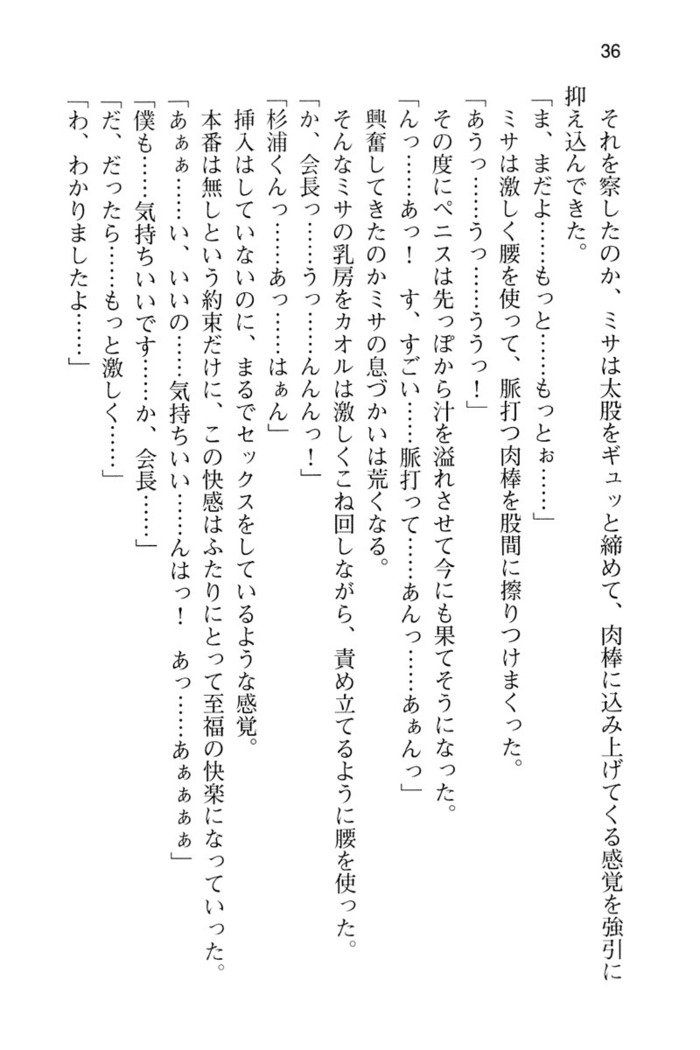 36
それを察したのか、ミサは太股をギュッと締めて、肉棒に込み上げてくる感覚を強引に
抑え込んできた。
「ま、まだよ……もっと……もっとぉ……」
ミサは激しく腰を使って、脈打つ肉棒を股間に擦りつけまくった。
「あうっ……うっ……ううっ！」
その度にペニスは先っぽから汁を溢れさせて今にも果てそうになった。
「んっ……あっ！　す、すごい……脈打って……あんっ……あぁんっ」
興奮してきたのかミサの息づかいは荒くなる。
そんなミサの乳房をカオルは激しくこね回しながら、責め立てるように腰を使った。
「か、会長っ……うっ……んんんっ！」
「杉浦くんっ……あっ……はぁん」
挿入はしていないのに、まるでセックスをしているような感覚。
本番は無しという約束だけに、この快感はふたりにとって至福の快楽になっていった。
「あぁぁ……い、いいの……気持ちいい……んはっ！　あっ……あぁぁぁぁ」
「僕も……気持ちいいです……か、会長……」
「だ、だったら……もっと激しく……」
「わ、わかりましたよ……」